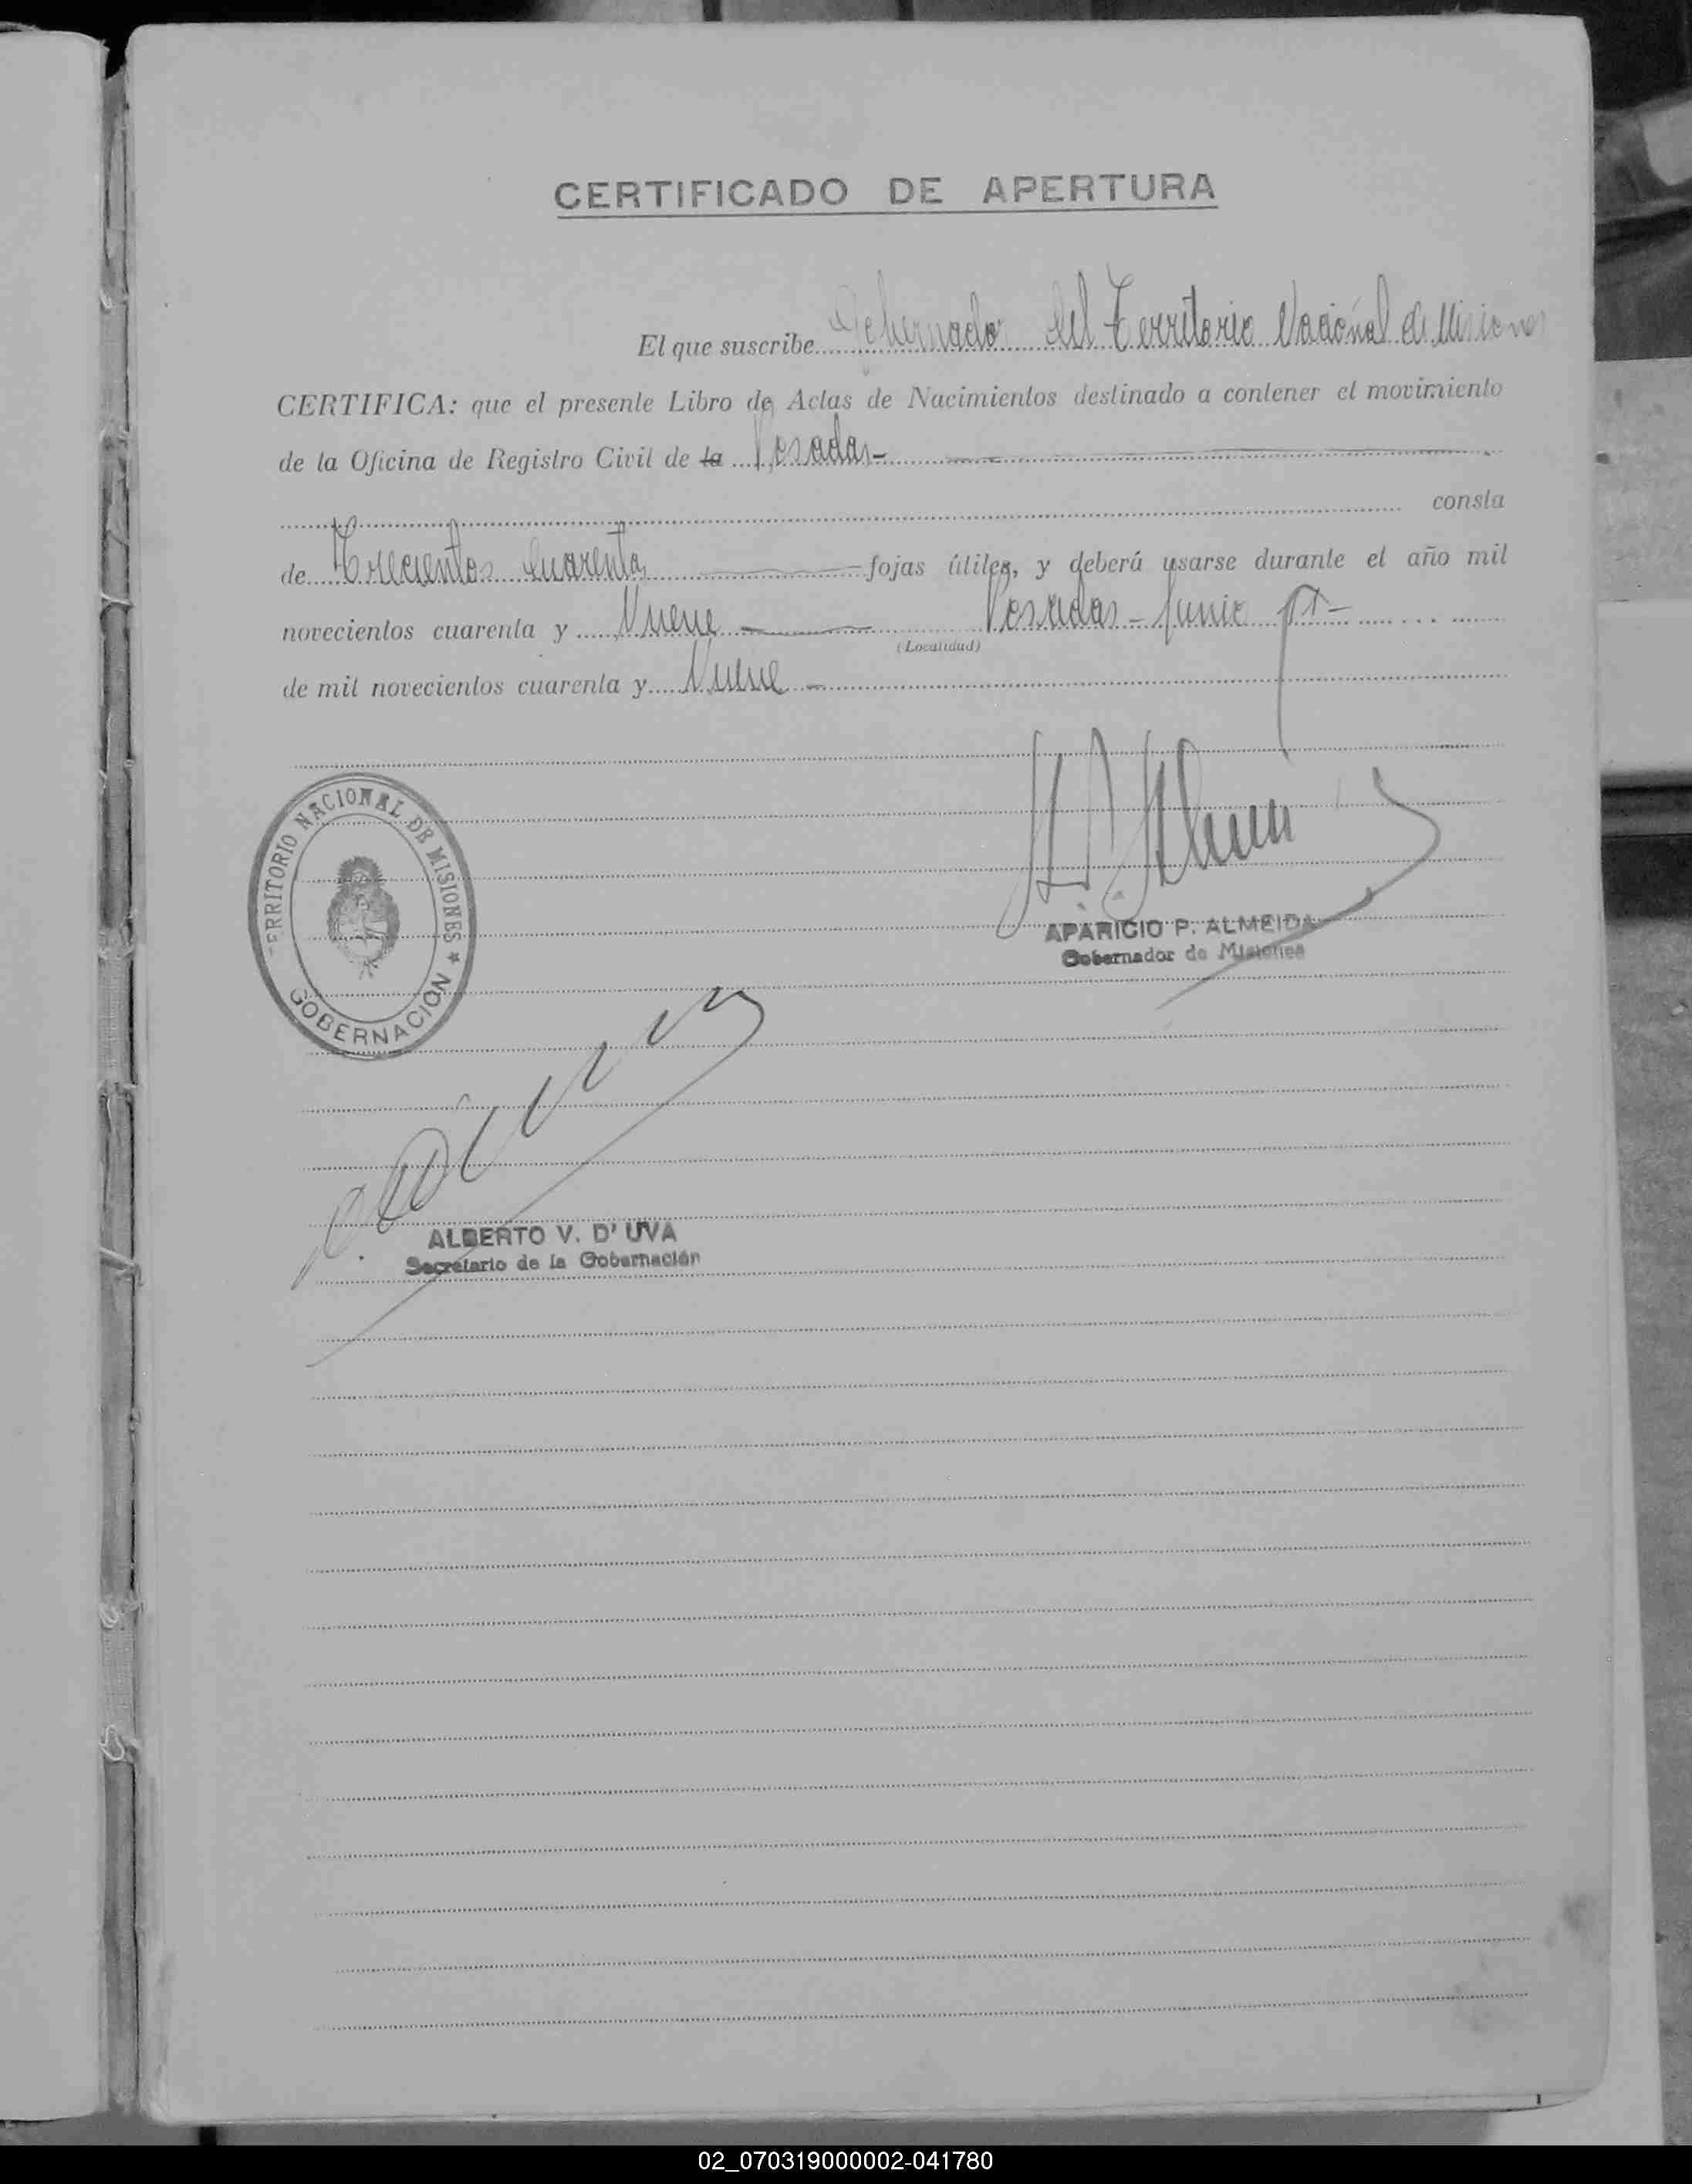 CERTIFICADO DE APERTURA
El que suscribe Gobernador del Territorio Nacional de Misiones
CERTIFICA: que el presente Libro de Actas de Nacimientos destinado a contener el movimiento
de la Oficina de Registro Civil de la Posadas-
consta
de Trecientos Cuarenta fojas útiles, y deberá usarse durante el año mil
novecientos cuarenta y Nueve Posadas - Junio
(Localidad)
de mil novecientos cuarenta y Nueve -
TERRITORIO NACIONAL DE MISIONES ★
GOBERNACION
APARICIO P. ALMEIDA
Gobernador de Misiones
ALBERTO V. D' UVA
Secretario de la Gobernación
02_070319000002-041780